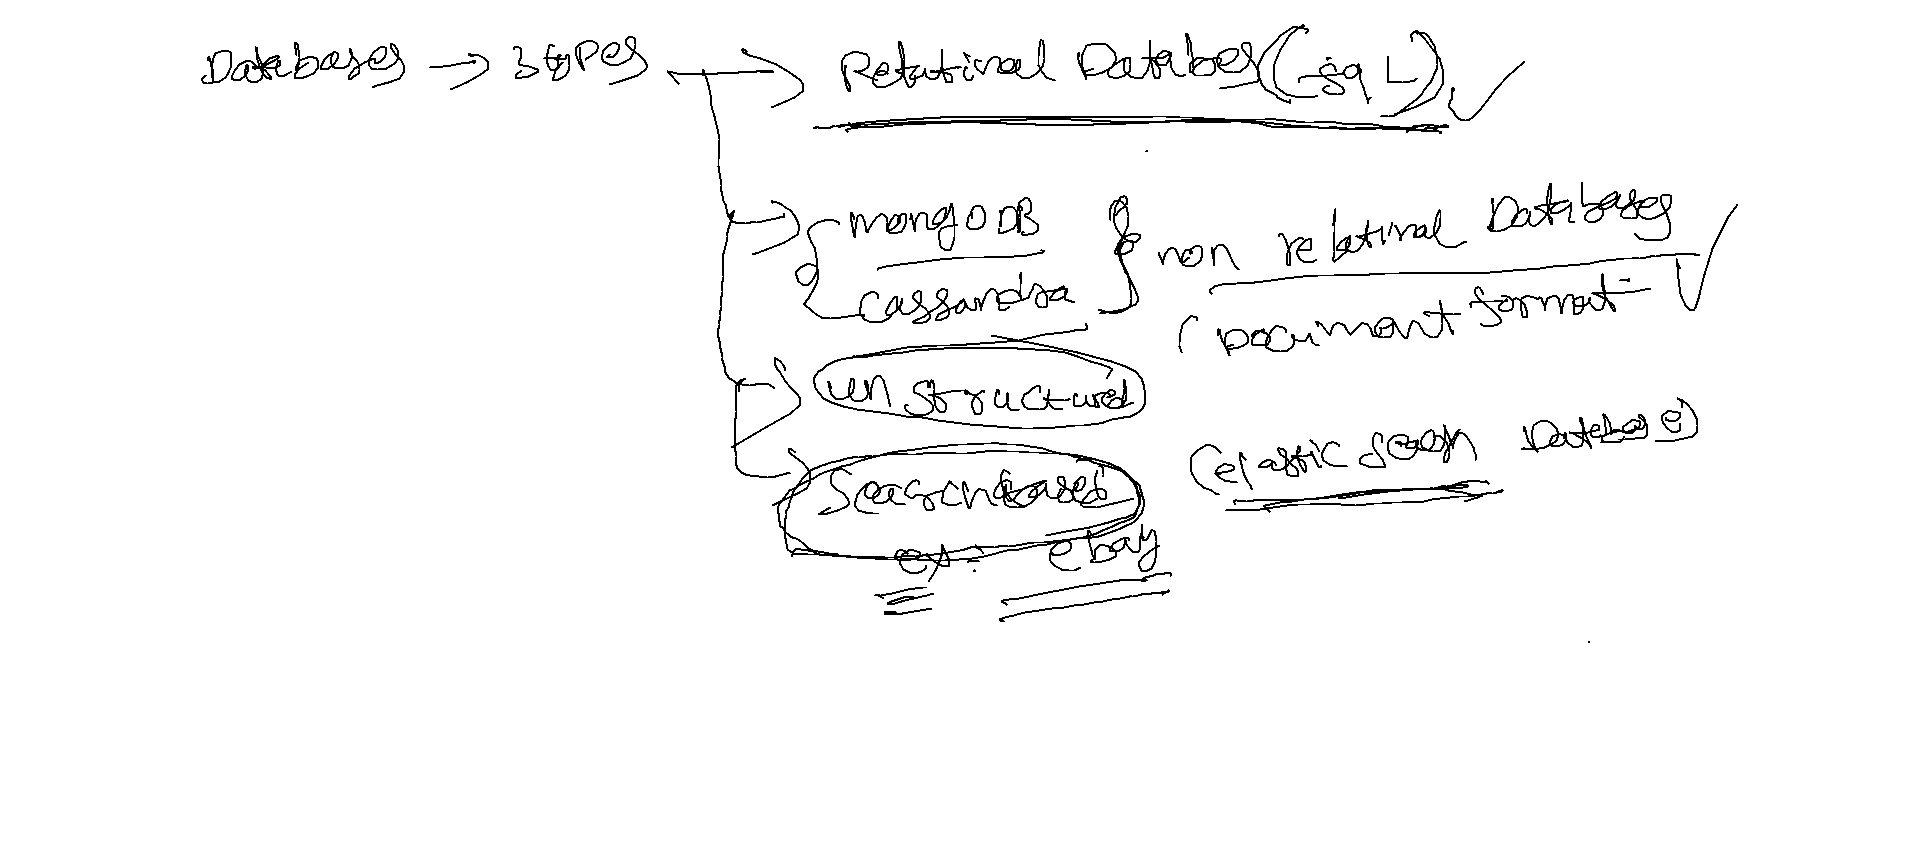 Databases → 3 types → Relational Databes (sql)
mongo DB
Cassandra
non relational Databases
(Document format
un structured
Search based
(elastic search Database)
ex: ebay